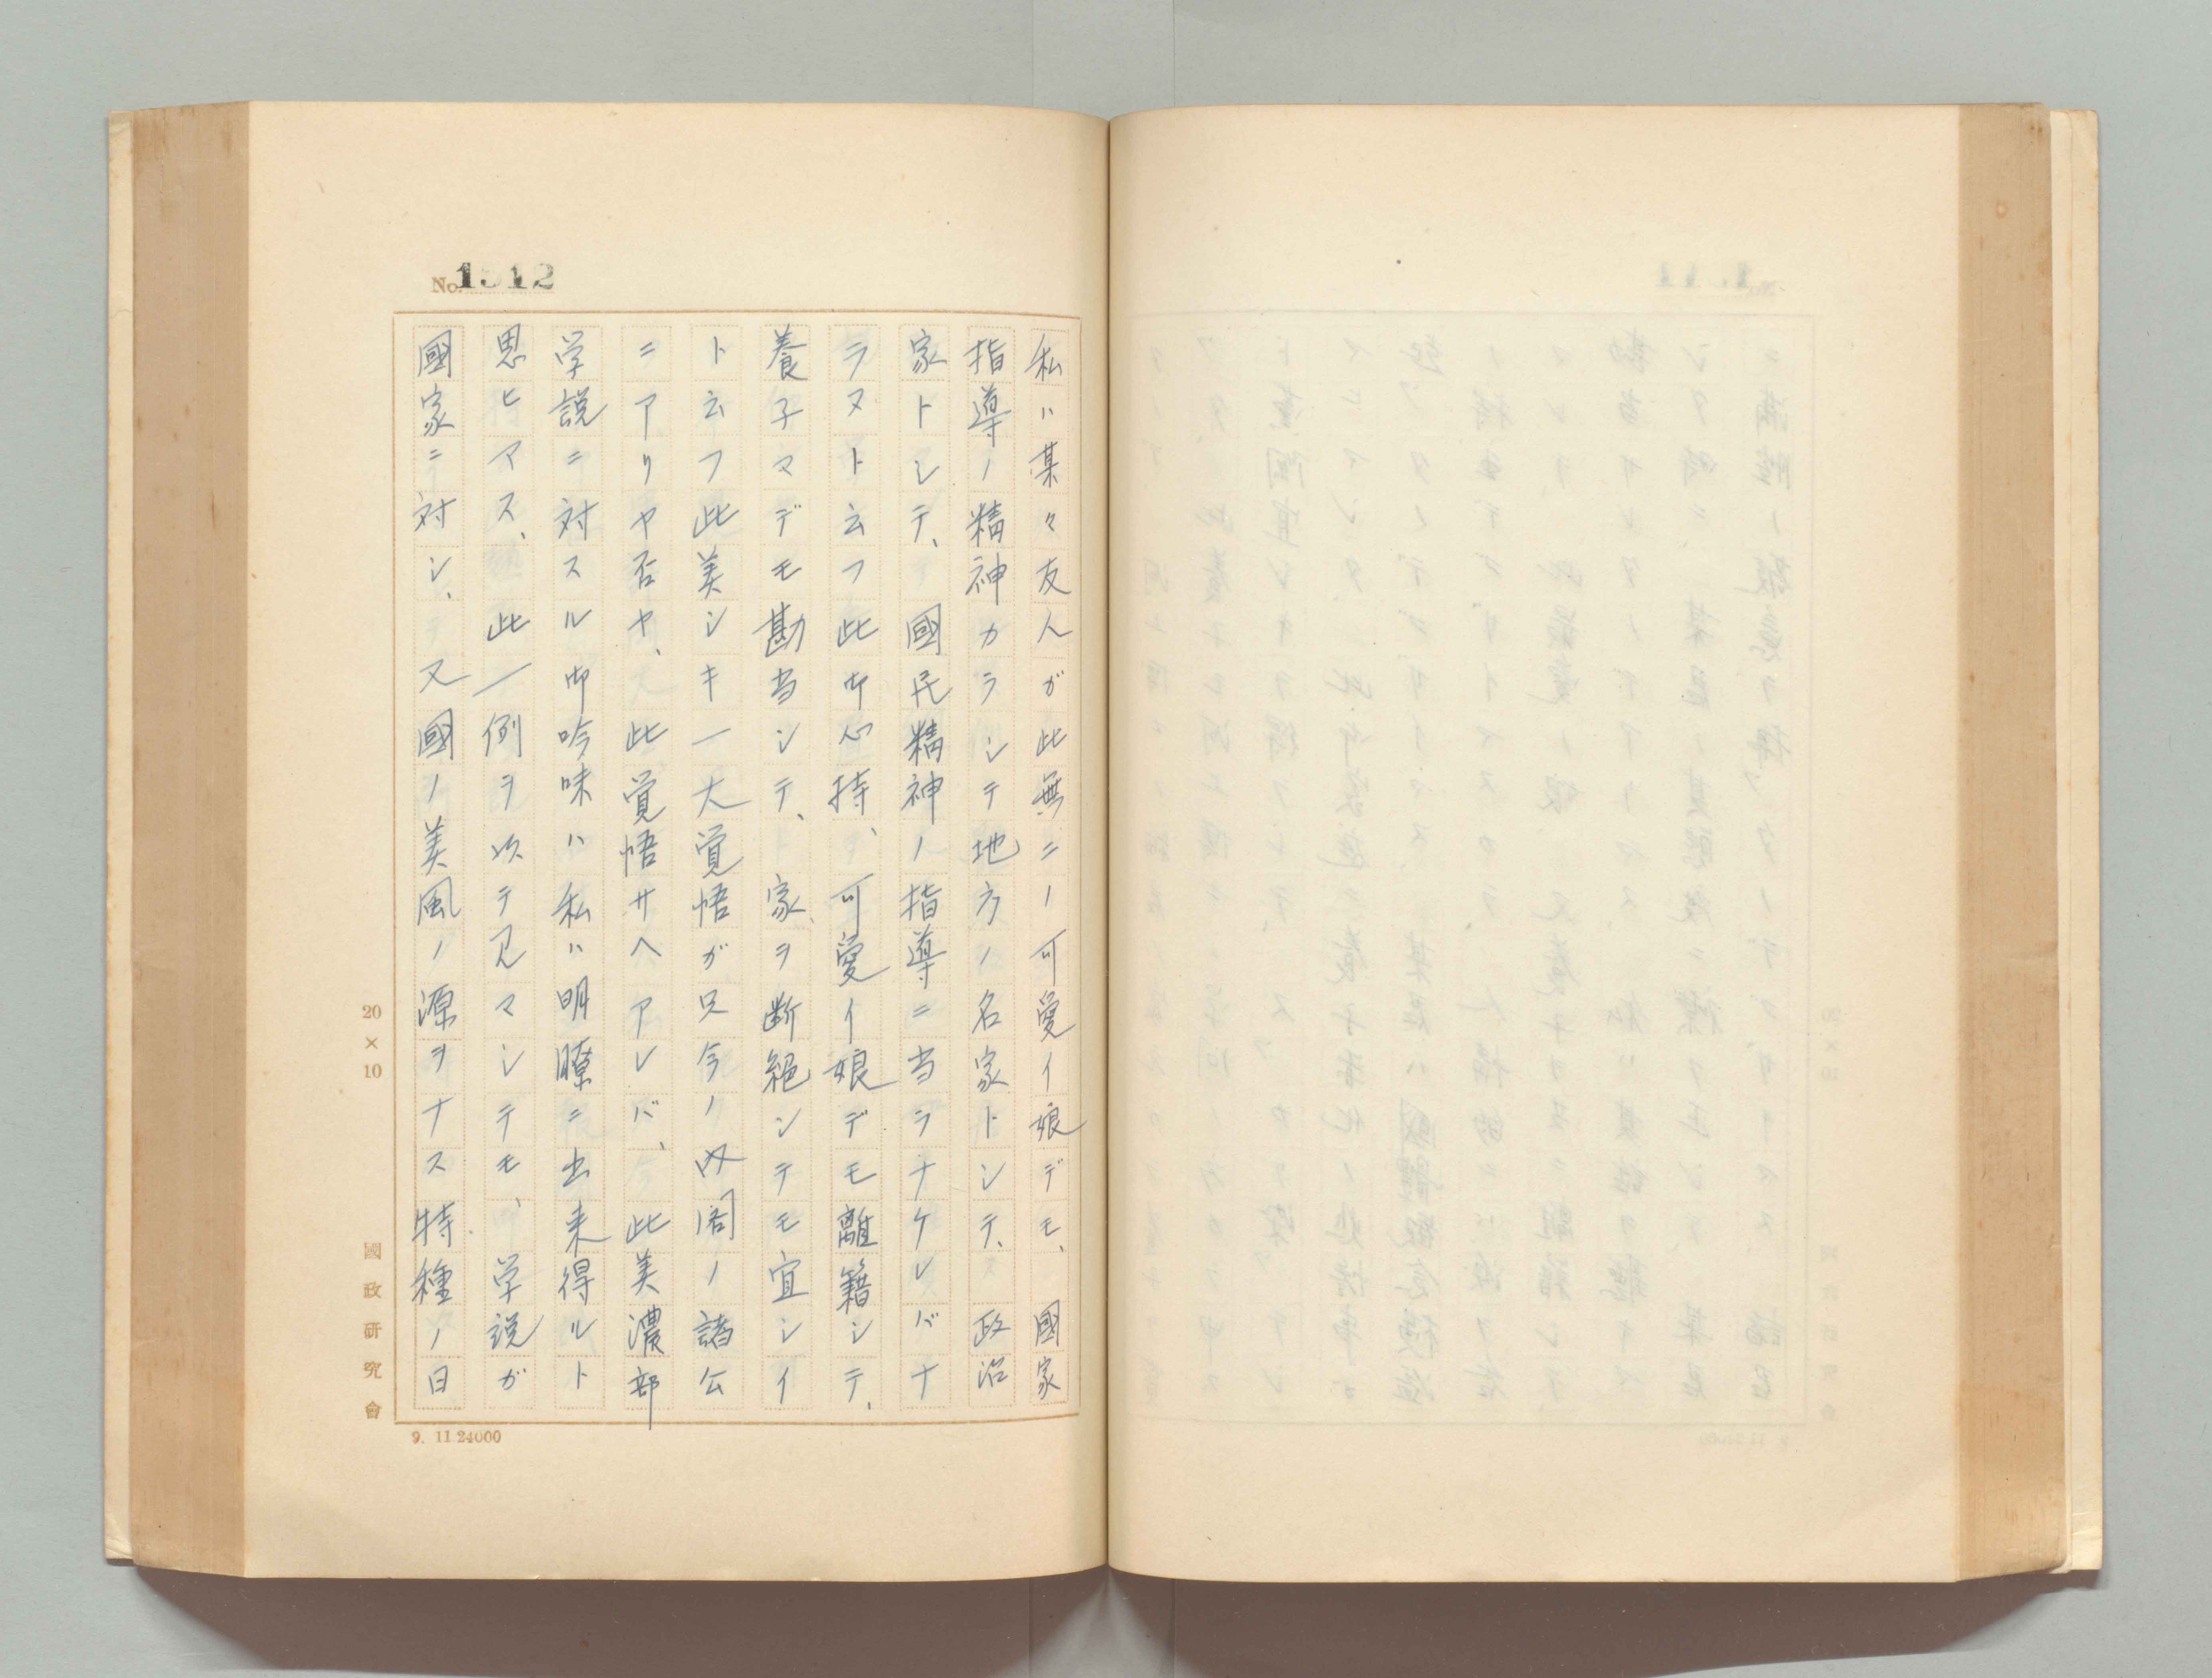 No. 1312
私ハ某々友人ガ此無ニノ可愛イ娘デモ、國家
指導ノ精神カラシテ地方ノ名家トシテ、政治
家トシテ、國民精神ノ指導ニ当ラナケレバナ
ラヌト云フ此御心持、可愛イ娘デモ離籍シテ、
養子マデモ勘当シテ、家ヲ断絶シテモ宜シイ
ト云フ此美シキ一大覚悟ガ只今ノ内閣ノ諸公
ニアリヤ否ヤ、此覚悟サヘアレバ、此美濃部
学説ニ対スル御吟味ハ私ハ明瞭ニ出来得ルト
思ヒマス、此一例ヲ以テ見マシテモ、学説ガ
國家ニ対シ、又國ノ美風ノ源ヲナス特種ノ日
20×10
國政研究會
9. 11.24000